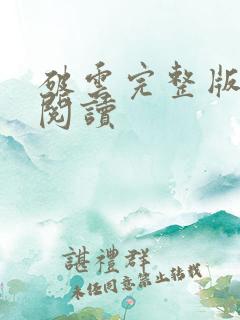 破雲完整版
閱讀
諶禮群
未经同意禁止转载